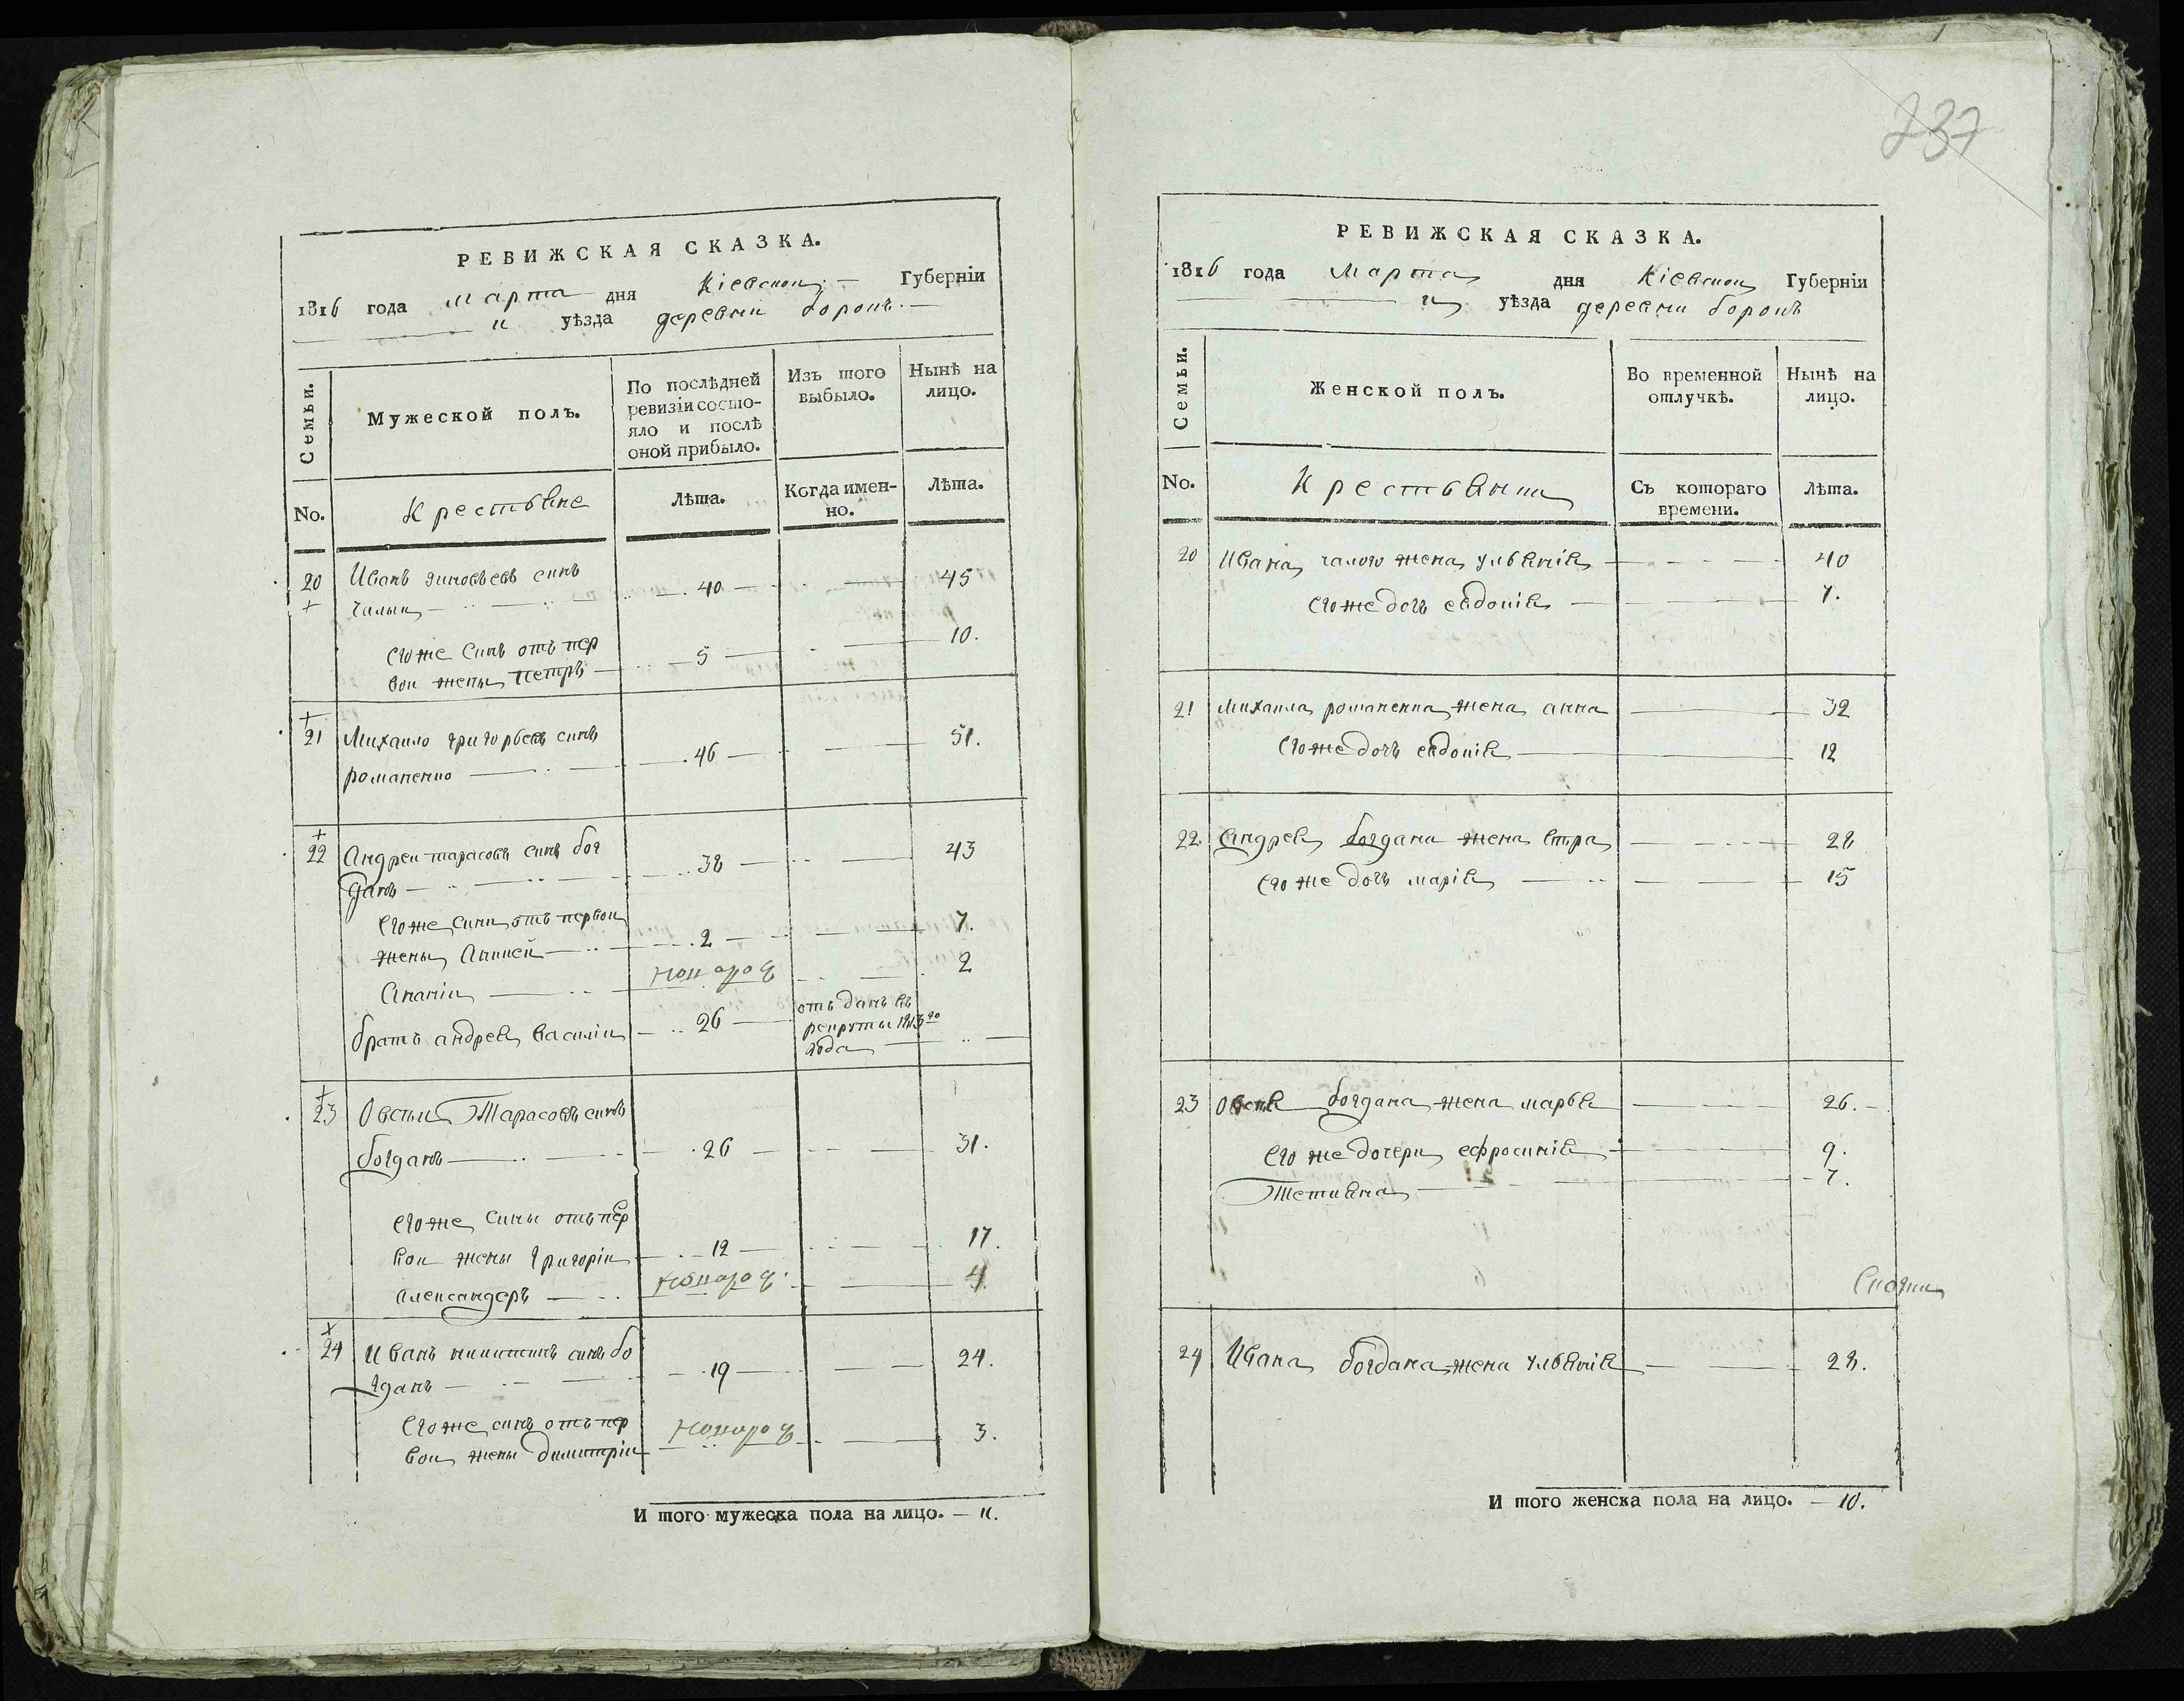 РЕВИЖСКАЯ СКАЗКА.
1816 года марта дня Кіевской Губерніи
и уѣзда деревни боронъ.
Семьи.
Мужеской полъ.
По послѣдней ревизіи состояло и послѣ оной прибыло.
Изъ того выбыло.
Нынѣ на лицо.
No.
Крестьяне
Лѣта.
Когда именно.
Лѣта.
20 Иванъ зиновъевъ синъ
чалыи 40 45
егоже синъ отъ пер
вои жены петръ 5 10.
21 Михаило григорьевъ синъ
романенко 46 51.
22 Андреи тарасовъ синъ бог
данъ 38 43
егоже сини отъ первои
жены 2 7.
Ананіи новорож 2
братъ андрея василіи 26 отъданъ въ
рекруты 1813го
года
23 Овсіи Тарасовъ синъ
богданъ 26 31.
егоже сины отъ пер
вои жены григоріи 12 17.
александеръ новорож. 4.
24 Иванъ никитинъ синъ бо
гданъ 19 24.
егоже синъ отъ пер
вои жены димитріи новорож 3.
И того мужеска пола на лицо. — 11.
237
РЕВИЖСКАЯ СКАЗКА.
1816 года марта дня Кіевской Губерніи
и уѣзда деревни боронъ
Семьи.
Женской полъ.
Во временной отлучкѣ.
Нынѣ на лицо.
No.
Крестьянки
Съ котораго времени.
Лѣта.
20 Ивана чалого жена ульянія 40
егоже дочъ евдокія 7.
21 михаила романенка жена анна 32
егоже дочъ евдокія 12
22. андрея богдана жена 28
его же дочъ марія 15
23 богдана жена марья 26.
его же дочери ефросинія 9.
Тетияна 7.
24 Ивана богдана жена ульянія 28.
И того женска пола на лицо. — 10.